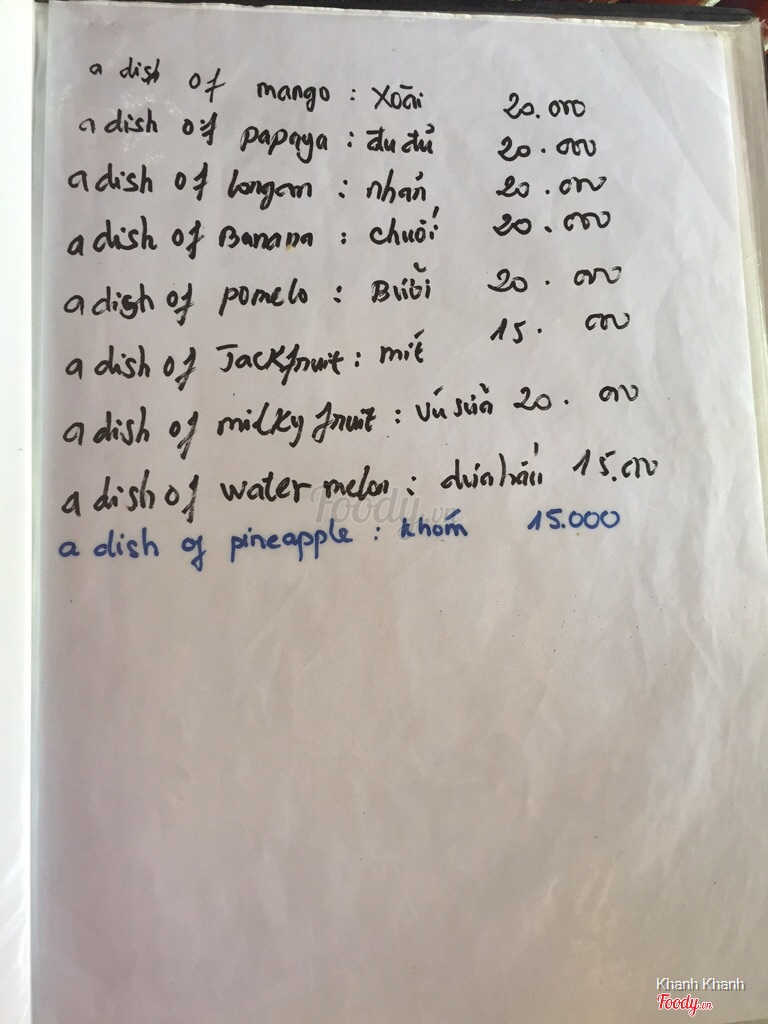 a dish of mango : Xoài 20.000
a dish of papaya : đu đủ 20.000
a dish of longan : nhãn 20.000
a dish of Banana : chuối 20.000
a dish of pomelo : Bưởi 20.000
a dish of Jackfruit : mít 15.000
a dish of milky fruit : vú sữa 20.000
a dish of water melon : dưa hấu 15.000
a dish of pineapple : khóm 15.000
Foody.vn
Khanh Khanh
Foody.vn